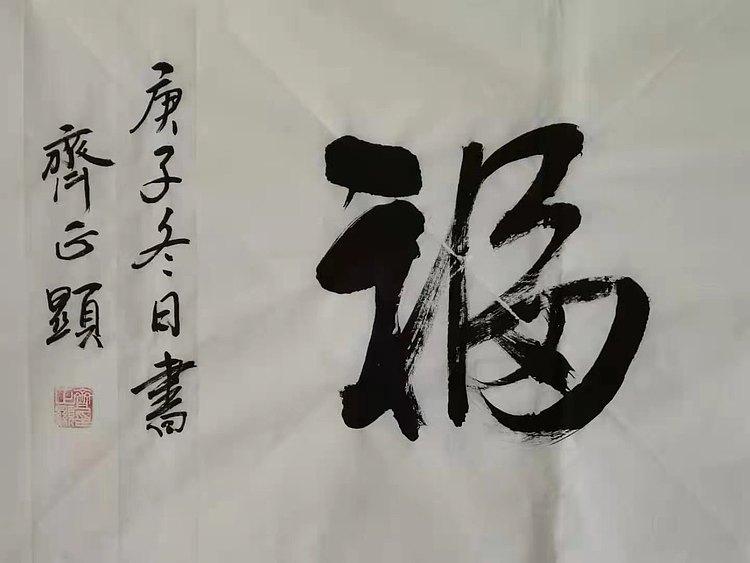 福
庚子冬日書
齊正顯